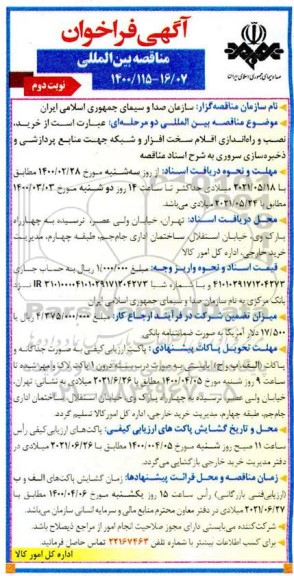 آگهی فراخوان
مناقصه بین المللی
۱۴۰۰/۱۱۵-۱۶/۰۷
نوبت دوم
صدا و سیمای جمهوری اسلامی ایران
نام سازمان مناقصه‌گزار: سازمان صدا و سیمای جمهوری اسلامی ایران
موضوع مناقصه بین المللی دو مرحله‌ای: عبارت است از خرید،
نصب و راه‌اندازی اقلام سخت افزار و شبکه جهت منابع پردازشی و
ذخیره‌سازی سروری به شرح اسناد مناقصه
مهلت و نحوه دریافت اسناد: از روز سه‌شنبه مورخ ۱۴۰۰/۰۲/۲۸ مطابق با
۲۰۲۱/۰۵/۱۸ میلادی حداکثر تا ساعت ۱۴ روز دو شنبه مورخ ۱۴۰۰/۰۳/۰۳
مطابق با ۲۰۲۱/۰۵/۲۴ میلادی می‌باشد.
محل دریافت اسناد: تهران، خیابان ولی عصر، نرسیده به چهارراه
پارک وی، خیابان استقلال، ساختمان اداری جام‌جم، طبقه چهارم، مدیریت
خرید خارجی، اداره کل امور کالا
قیمت اسناد و نحوه واریز وجه: مبلغ ۱/۰۰۰/۰۰۰ ریال به حساب جاری
۴۱۰۱۰۲۹۱۷۱۲۰۴۲۷۳ و با شماره شبا IR ۳۱۰۱۰۰۰۰۴۱۰۱۰۲۹۱۷۱۲۰۴۲۷۳
بانک مرکزی به نام سازمان صدا و سیمای جمهوری اسلامی ایران
میزان تضمین شرکت در فرآیند ارجاع کار: مبلغ ۴/۳۷۵/۰۰۰/۰۰۰ ریال یا
۱۷/۵۰۰ دلار آمریکا به صورت ضمانتنامه بانکی
مهلت تحویل پاکات پیشنهادی: پاکت ارزیابی کیفی به صورت جداگانه و
پاکات (الف، ب و ج) بایستی به صورت در بسته درون لاک و مهر شده تا
ساعت ۹ روز شنبه مورخ ۱۴۰۰/۰۴/۰۵ مطابق با ۲۰۲۱/۶/۲۶ میلادی به نشانی: تهران،
خیابان ولی عصر، نرسیده به چهارراه پارک وی، خیابان استقلال، ساختمان اداری
جام‌جم، طبقه چهارم، مدیریت خرید خارجی اداره کل امور کالا تسلیم گردد.
محل و تاریخ گشایش پاکت های ارزیابی کیفی: پاکت‌های ارزیابی کیفی رأس
ساعت ۱۱ صبح روز شنبه مورخ ۱۴۰۰/۰۴/۰۵ مطابق با ۲۰۲۱/۰۶/۲۶ میلادی در
دفتر مدیریت خرید خارجی بازگشایی می‌گردد.
زمان مناقصه و محل قرائت پیشنهادها: زمان گشایش پاکت‌های الف و ب
(ارزیابی فنی بازرگانی) رأس ساعت ۱۵ روز یکشنبه مورخ ۱۴۰۰/۰۴/۰۶ مطابق با
۲۰۲۱/۰۶/۲۷ میلادی در دفتر معاون محترم منابع مالی و سرمایه انسانی سازمان می‌باشد.
شرکت‌کننده می‌بایستی دارای مجوز صلاحیت انجام امور از مراجع ذیصلاح باشد.
برای کسب اطلاعات بیشتر با شماره تلفن ۲۲۱۶۷۴۶۳ تماس حاصل فرمائید.
اداره کل امور کالا